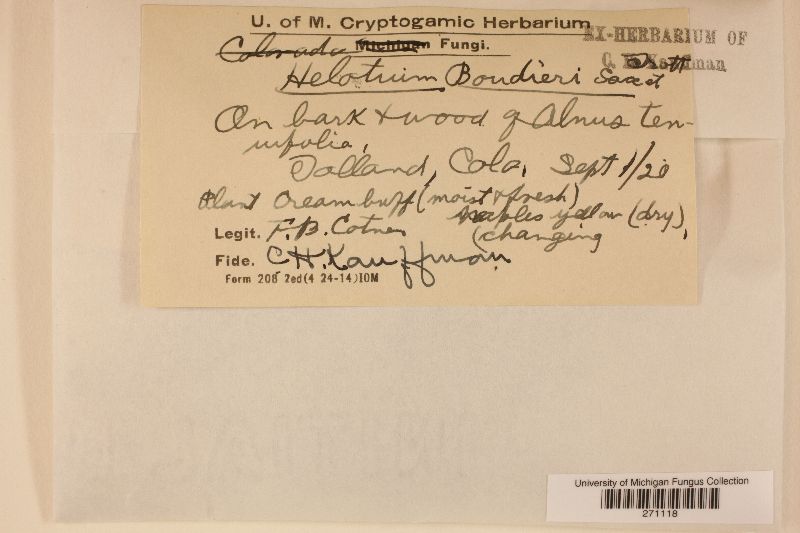 U. of M. Cryptogamic Herbarium
EX-HERBARIUM OF
Colorado Michigan Fungi.
C. H. Kauffman
Helotium Boudieri Sacc et
On bark & wood of Alnus ten-
uifolia,
Tolland, Colo, Sept 1/20
Plant Cream buff (moist & fresh)
naples yellow (dry),
(changing
Legit. F.B. Cotner
Fide. C H. Kauffman
Form 208 2ed(4 24-14)10M
University of Michigan Fungus Collection
271118